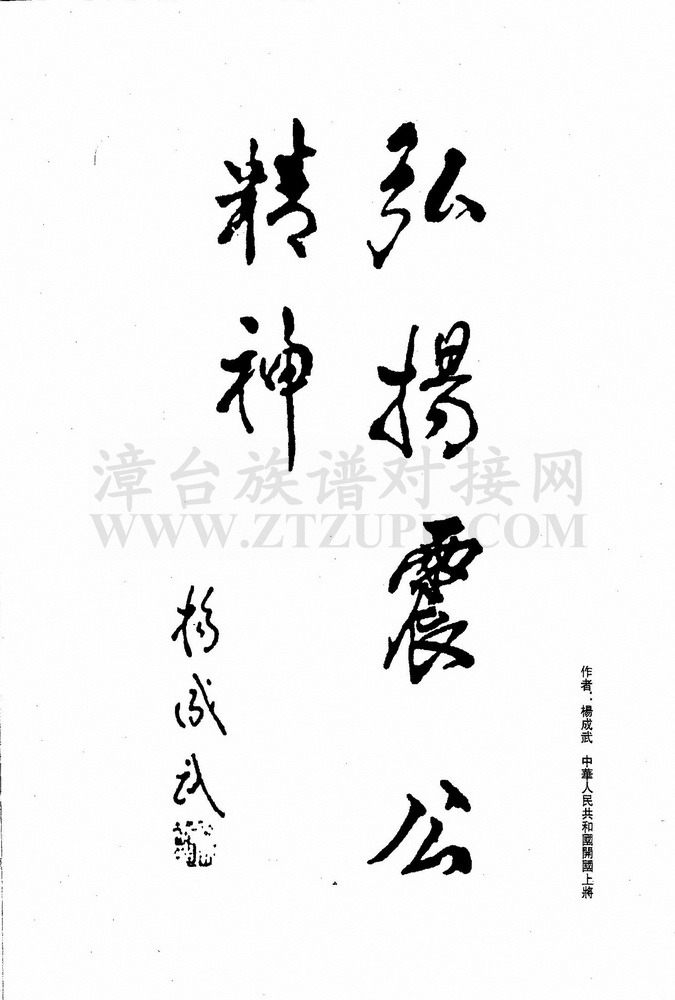 弘揚震公
精神
楊成武
作者：楊成武 中華人民共和國開國上將
漳台族谱对接网
WWW.ZTZUPU.COM